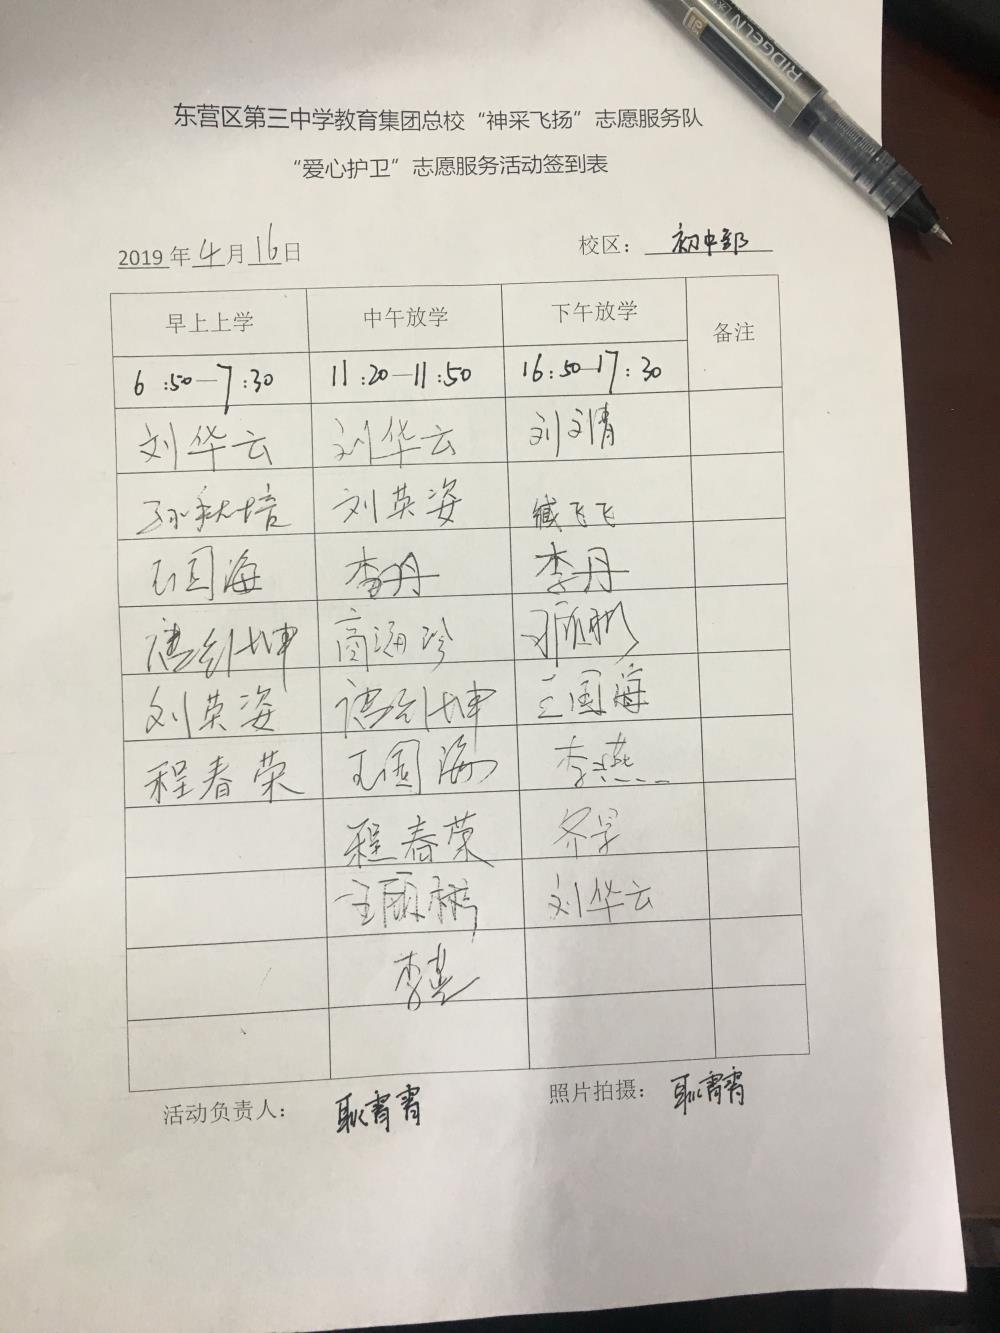 RIDGELN
东营区第三中学教育集团总校“神采飞扬”志愿服务队
“爱心护卫”志愿服务活动签到表
2019年4月16日 校区：初中部
早上上学 中午放学 下午放学 备注
6:50—7:30 11:20—11:50 16:50—17:30
刘华云 刘华云 刘文倩
孙秋培 刘英姿 臧飞飞
王国海 李丹 李丹
唐剑坤 商海珍
刘英姿 唐剑坤 王国海
程春荣 王国海 李燕
程春荣 齐昊
刘华云
活动负责人：耿霄霄 照片拍摄：耿霄霄